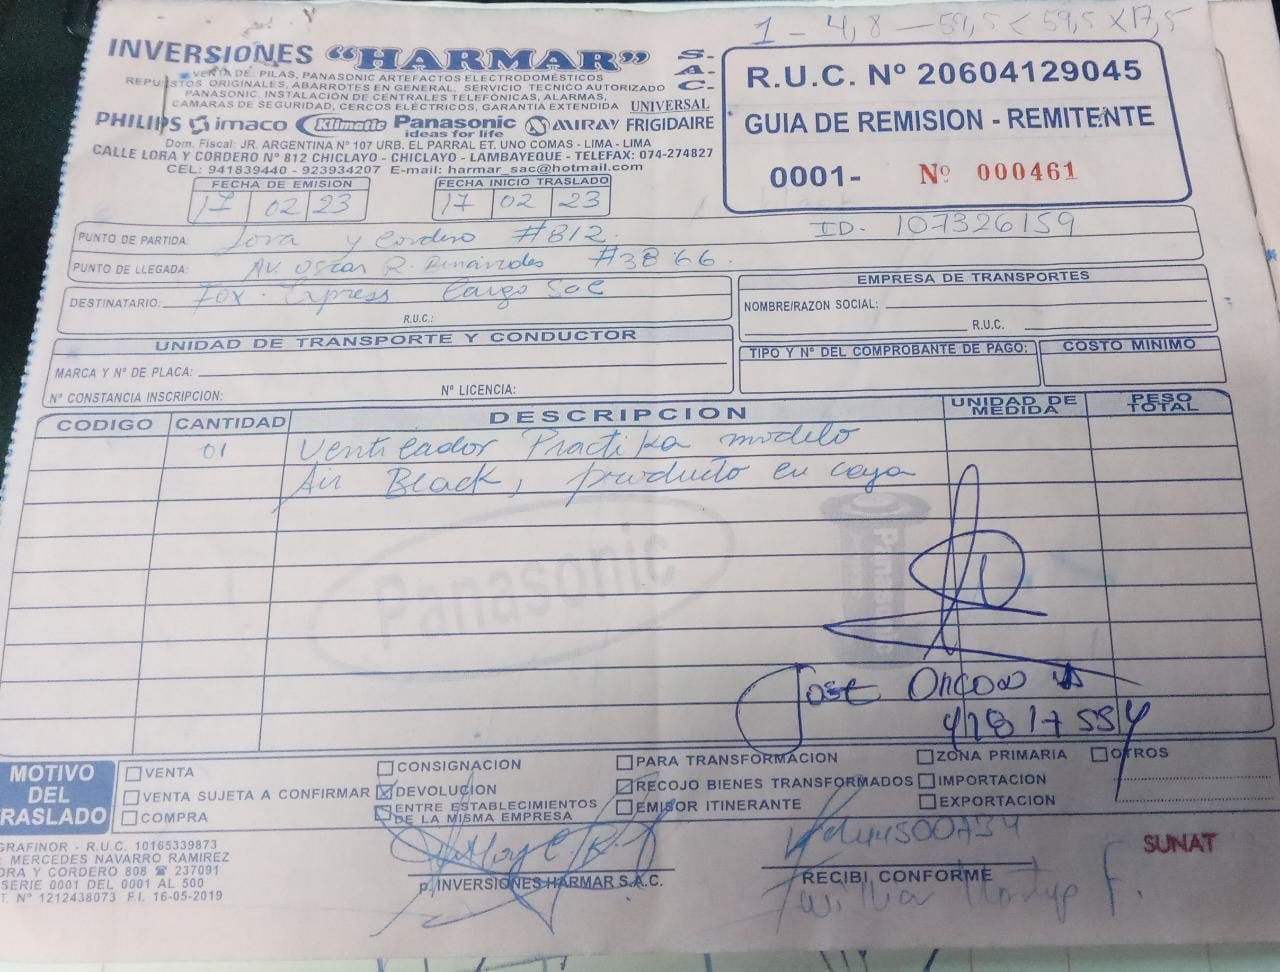 1 - 4,8 - 59,5 < 59,5 X 17,5
INVERSIONES "HARMAR" S.A.C.
VENTA DE: PILAS, PANASONIC ARTEFACTOS ELECTRODOMÉSTICOS
REPUESTOS ORIGINALES, ABARROTES EN GENERAL, SERVICIO TECNICO AUTORIZADO
PANASONIC, INSTALACION DE CENTRALES TELEFÓNICAS, ALARMAS,
CAMARAS DE SEGURIDAD, CERCOS ELÉCTRICOS, GARANTIA EXTENDIDA UNIVERSAL
PHILIPS imaco Klimatic Panasonic MIRAY FRIGIDAIRE
ideas for life
Dom. Fiscal: JR. ARGENTINA Nº 107 URB. EL PARRAL ET. UNO COMAS - LIMA - LIMA
CALLE LORA Y CORDERO Nº 812 CHICLAYO - CHICLAYO - LAMBAYEQUE - TELEFAX: 074-274827
CEL: 941839440 - 923934207 E-mail: harmar_sac@hotmail.com
R.U.C. Nº 20604129045
GUIA DE REMISION - REMITENTE
0001- Nº 000461
FECHA DE EMISION
17 02 23
FECHA INICIO TRASLADO
17 02 23
PUNTO DE PARTIDA: Lora y Cordero #812. ID. 107326159
PUNTO DE LLEGADA: Av. Oscar R. Benavides #3866.
DESTINATARIO: Fox Express Cargo SAC
R.U.C.:
EMPRESA DE TRANSPORTES
NOMBRE/RAZON SOCIAL:
R.U.C.
UNIDAD DE TRANSPORTE Y CONDUCTOR
MARCA Y Nº DE PLACA:
Nº CONSTANCIA INSCRIPCION: Nº LICENCIA:
TIPO Y Nº DEL COMPROBANTE DE PAGO: COSTO MINIMO
CODIGO CANTIDAD DESCRIPCION UNIDAD DE MEDIDA PESO TOTAL
01 Ventilador Practika modelo
Air Black, producto en caja
Panasonic
Panasonic
Jose
42817554
MOTIVO DEL TRASLADO
VENTA
VENTA SUJETA A CONFIRMAR
COMPRA
CONSIGNACION
DEVOLUCION
ENTRE ESTABLECIMIENTOS
DE LA MISMA EMPRESA
PARA TRANSFORMACION
RECOJO BIENES TRANSFORMADOS
EMISOR ITINERANTE
ZONA PRIMARIA
IMPORTACION
EXPORTACION
OTROS
GRAFINOR - R.U.C. 10165339873
MERCEDES NAVARRO RAMIREZ
ORA Y CORDERO 808 ☎ 237091
SERIE 0001 DEL 0001 AL 500
T. Nº 1212438073 F.I. 16-05-2019
p. INVERSIONES HARMAR S.A.C.
RECIBI CONFORME
SUNAT